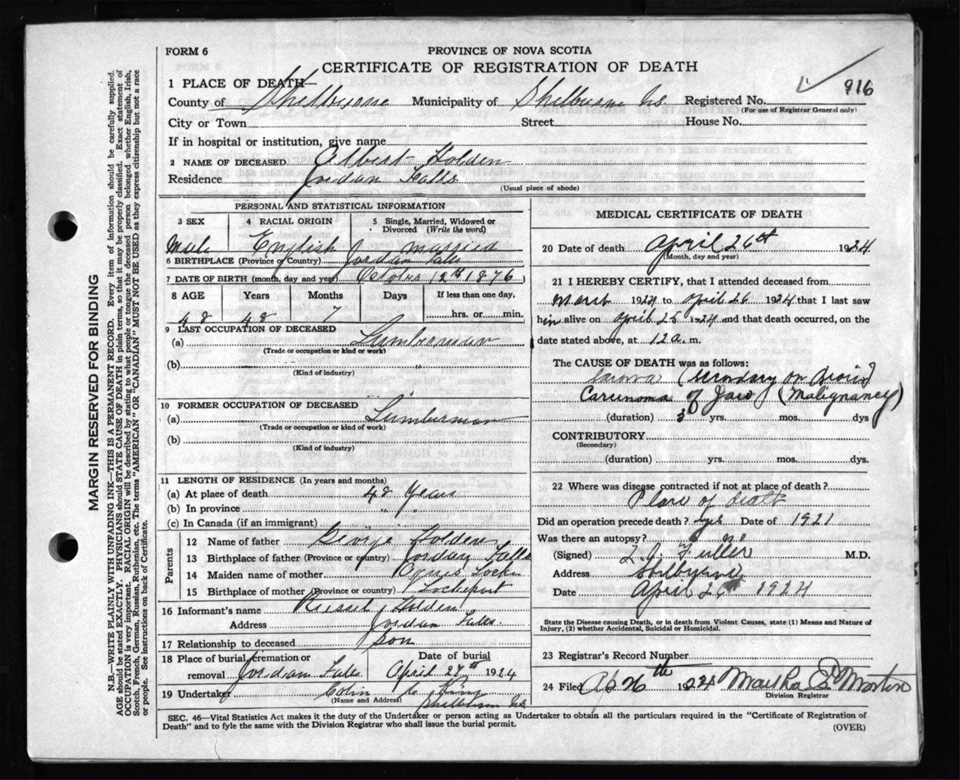 FORM 6
PROVINCE OF NOVA SCOTIA
CERTIFICATE OF REGISTRATION OF DEATH
916
1 PLACE OF DEATH
County of Shelburne Municipality of Shelburne N.S. Registered No.
(For use of Registrar General only)
City or Town Street House No.
If in hospital or institution, give name
2 NAME OF DECEASED Albert Holden
Residence Jordan Falls
(Usual place of abode)
PERSONAL AND STATISTICAL INFORMATION
3 SEX 4 RACIAL ORIGIN 5 Single, Married, Widowed or Divorced (Write the word)
Male English married
6 BIRTHPLACE (Province or Country) Jordan Falls
7 DATE OF BIRTH (month, day and year) October 12th 1876
8 AGE Years Months Days If less than one day,
48 48 7 hrs. or min.
9 LAST OCCUPATION OF DECEASED
(a) Lumberman
(Trade or occupation or kind or work)
(b)
(Kind of industry)
10 FORMER OCCUPATION OF DECEASED
(a) Lumberman
(Trade or occupation or kind or work)
(b)
(Kind of industry)
11 LENGTH OF RESIDENCE (In years and months)
(a) At place of death 48 Years
(b) In province " "
(c) In Canada (if an immigrant)
Parents
12 Name of father George Holden
13 Birthplace of father (Province or country) Jordan Falls
14 Maiden name of mother
15 Birthplace of mother (Province or country) Lockeport
16 Informant's name Holden
Address Jordan Falls
17 Relationship to deceased Son
18 Place of burial, cremation or removal Jordan Falls Date of burial April 27th 1924
19 Undertaker Colin
(Name and Address) Shelburne N.S.
MEDICAL CERTIFICATE OF DEATH
20 Date of death April 26th 1924
(Month, day and year)
21 I HEREBY CERTIFY, that I attended deceased from
March 1924 to April 26 1924 that I last saw
him alive on April 25 1924 and that death occurred, on
date stated above, at 12 a. m.
The CAUSE OF DEATH was as follows:
(secondary
Carcinoma of Jaw (Malignancy)
(duration) 3 yrs. mos. dys
CONTRIBUTORY
(Secondary)
(duration) yrs. mos. dys.
22 Where was disease contracted if not at place of death?
Place of death
Did an operation precede death? yes Date of 1921
Was there an autopsy? No
(Signed) Fuller M.D.
Address Shelburne
Date April 26 1924
State the Disease causing Death, or in death from Violent Causes, state (1) Means and Nature of Injury, (2) whether Accidental, Suicidal or Homicidal.
23 Registrar's Record Number
24 Filed Ap 26th 1924 Martha Morton
Division Registrar
SEC. 46—Vital Statistics Act makes it the duty of the Undertaker or person acting as Undertaker to obtain all the particulars required in the "Certificate of Registration of Death" and to fyle the same with the Division Registrar who shall issue the burial permit.
(OVER)
MARGIN RESERVED FOR BINDING
N.B.—WRITE PLAINLY WITH UNFADING INK—THIS IS A PERMANENT RECORD. Every item of information should be carefully supplied.
AGE should be stated EXACTLY. PHYSICIANS should STATE CAUSE OF DEATH in plain terms, so that it may be properly classified. Exact statement of
OCCUPATION is very important. RACIAL ORIGIN will be described by stating to what people or tongue the deceased person belonged whether English, Irish,
Scotch, French, German, Russian, Ruthenian, etc. The terms "AMERICAN" or "CANADIAN" MUST NOT BE USED as they express citizenship but not a race
or people. See instructions on back of Certificate.